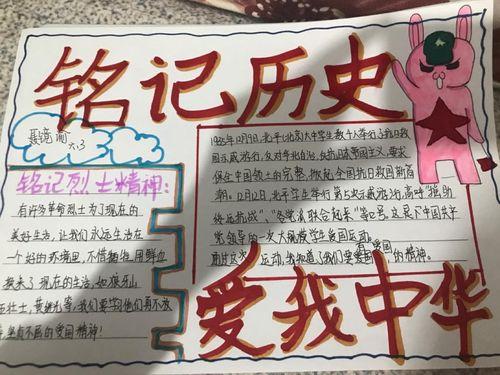 铭记历史
六3
1935年12月9日,北平(北京)大中学生数千人举行了抗日救
国示威游行,反对华北自治,反抗日本帝国主义,要求
保全中国领土的完整,掀起全国抗日救国新高
潮。12月12日,北平学生举行第5次示威游行,高呼“援助
绥远抗战”、“各党派联合起来”等口号,这是个中国共产
党领导的一次大规模学生爱国运动。
运动,我知道了我们要有爱国的精神。
铭记烈士精神:
有许多革命烈士为了现在的
美好生活,让我们永远生活在
一个好的环境里,不惜牺牲,用鲜血
换来了现在的生活,如狼牙山
五壮士,黄继光等,我们要学习他们再不放
坚贞不屈的爱国精神!
爱我中华